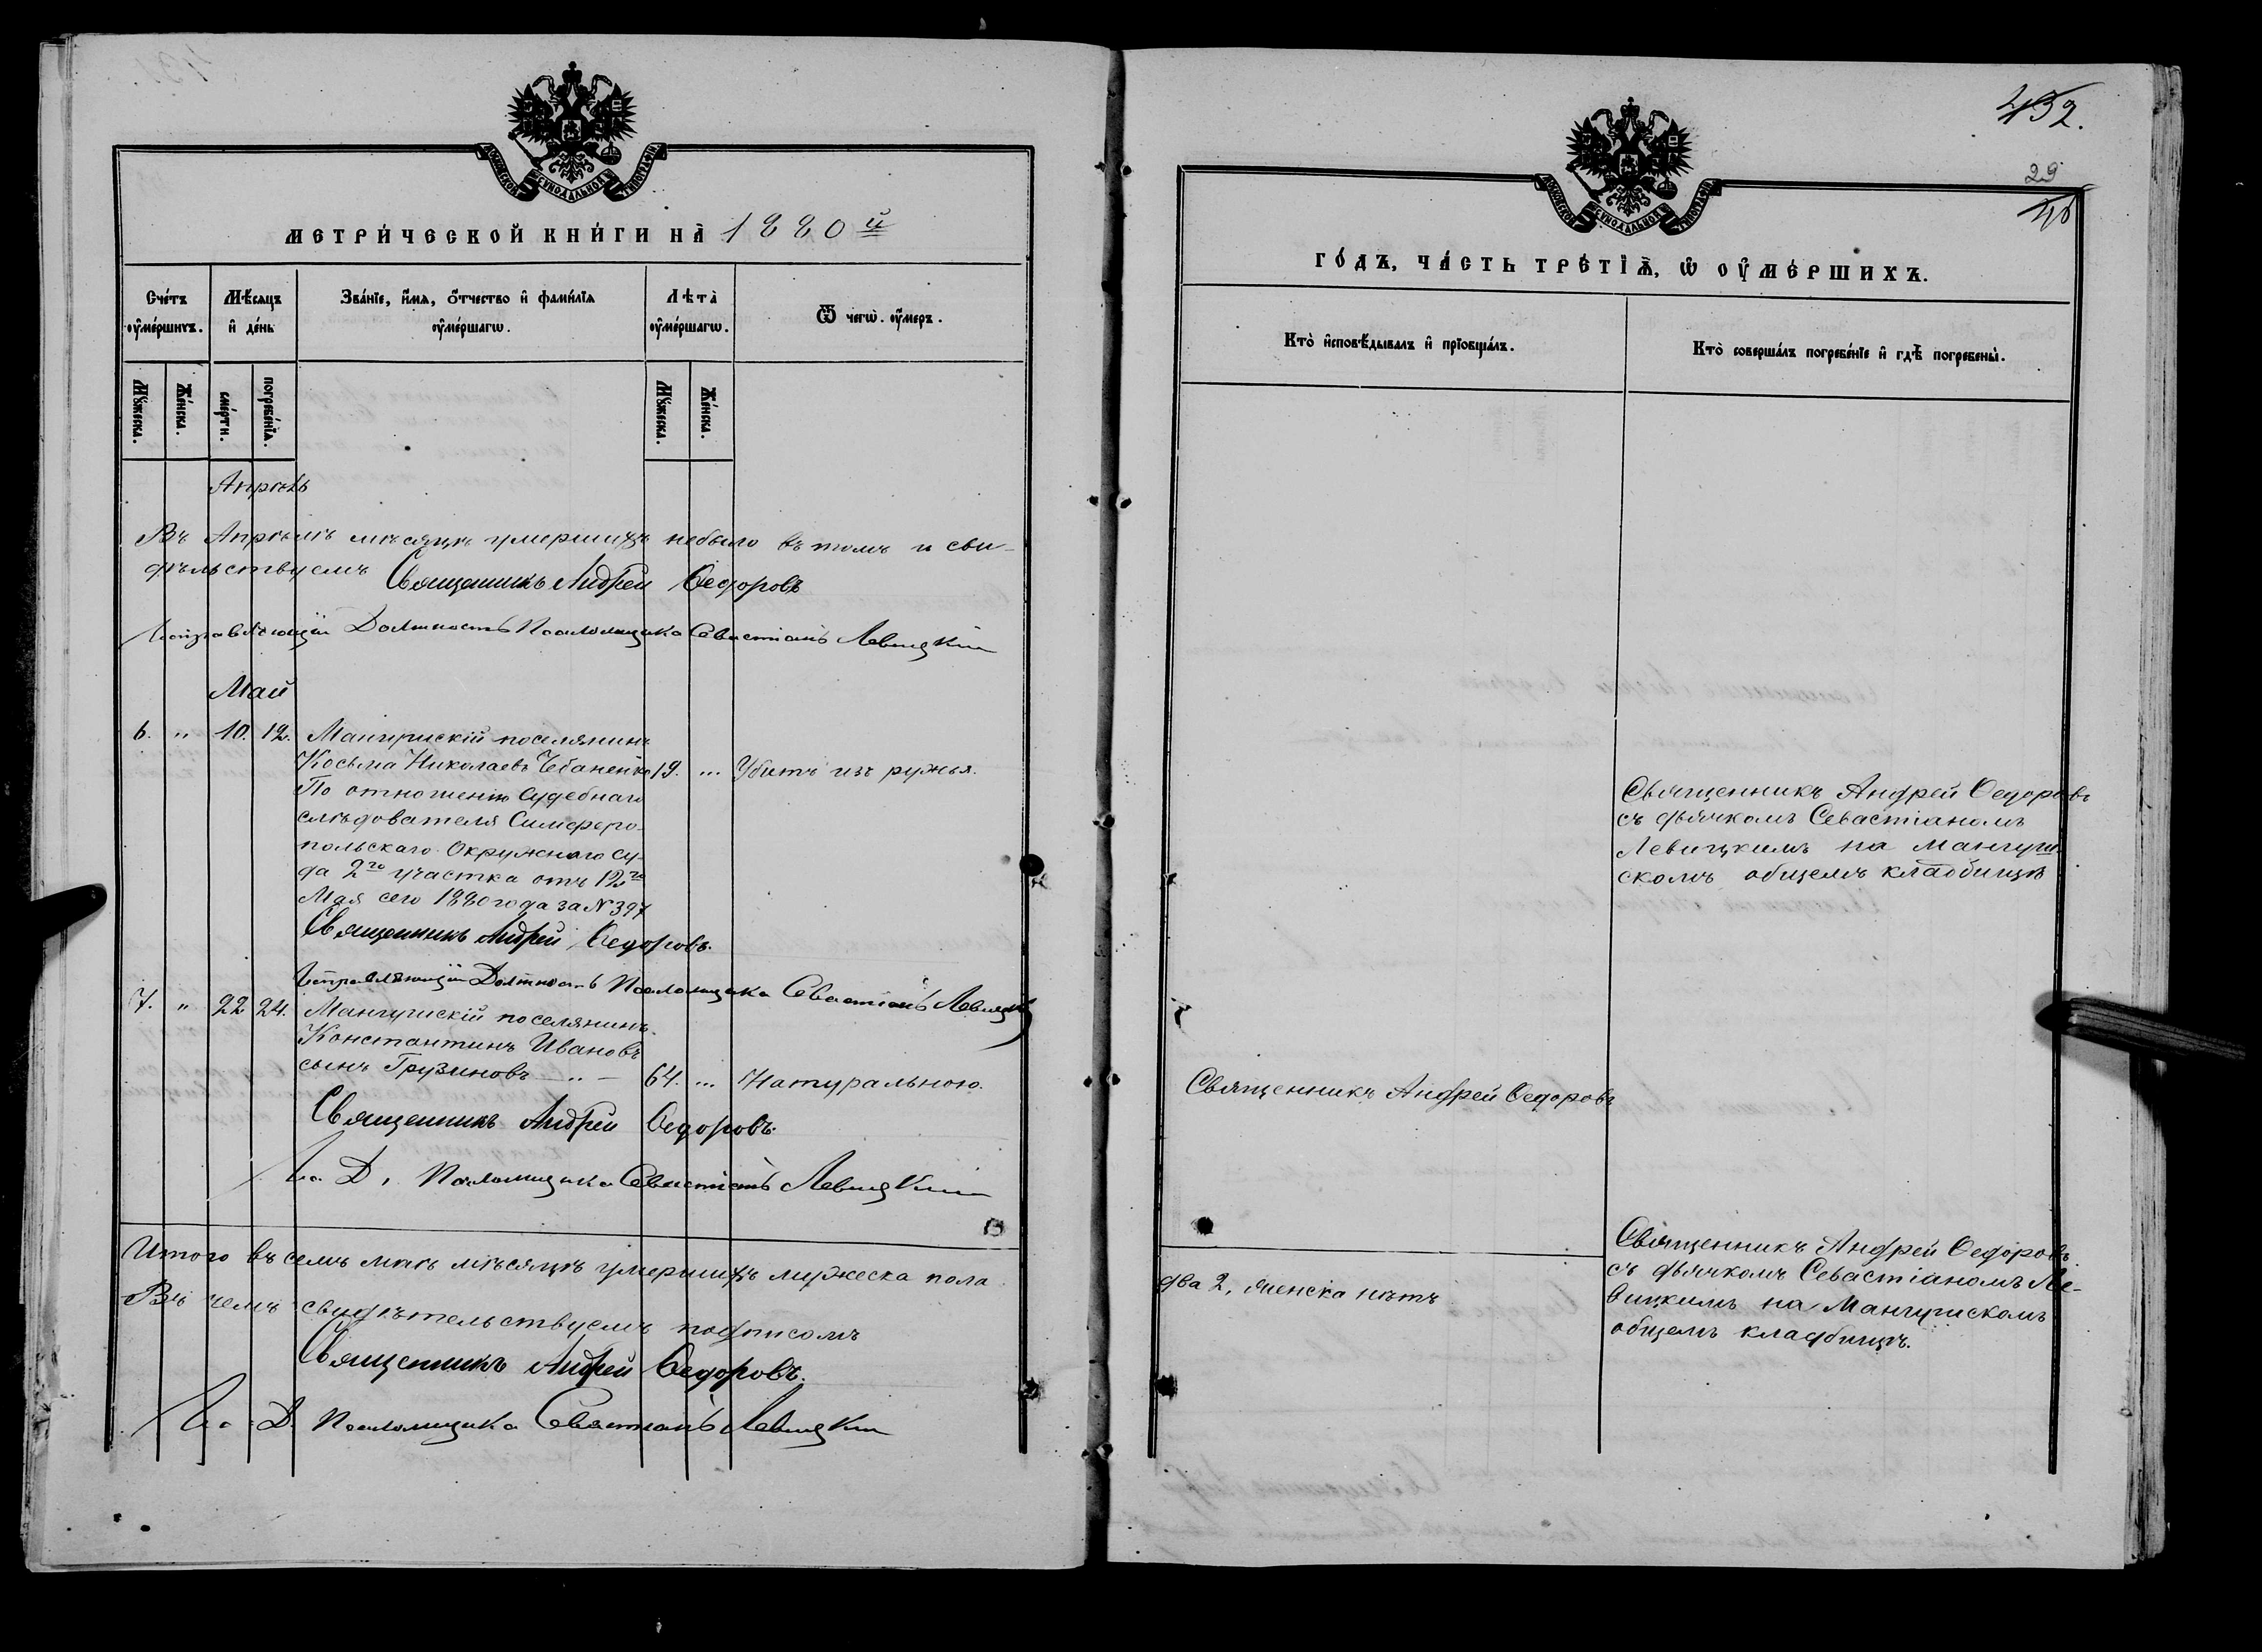 МОСКОВСКОЙ СѴНОДАЛЬНОЙ ТИПОГРАФІИ
МЕТРИ́ЧЕСКОЙ КНИ́ГИ НА̀ 1880 й
Сче́тъ ᲂу҆ме́ршихъ.
Мѣ́сяцъ и҆ де́нь
Зва́нїе, и҆́мѧ, ѻ҆́тчество и҆ фами́лїѧ ᲂу҆ме́ршагѡ.
Лѣта̀ ᲂу҆ме́ршагѡ.
Ѿ чегѡ̀ ᲂу҆́меръ.
Мꙋ́жеска.
Же́нска.
сме́рти.
погребе́нїѧ.
Мꙋ́жеска.
Же́нска.
Апрѣль
Въ Апрѣлѣ мѣсяцѣ умершихъ небыло въ томъ и сви-
дѣльствуемъ Священникъ Андрей Ѳедоровъ
Исправляющій Должность Псаломщика Севастіанъ Левицкій
Май
6. " 10. 12. Мангушскій поселянинъ
Косьма Николаевъ Чебаненко 19. ... Убитъ изъ ружья.
По отношенію Судебнаго
слѣдователя Симферо-
польскаго Окружнаго су-
да 2го участка отъ 12го
Мая сего 1880 года за № 397
Священникъ Андрей Ѳедоровъ.
Исправляющій Должность Псаломщика Севастіанъ Левицкій
7. " 22 24. Мангушскій поселянинъ
Константинъ Ивановъ
сынъ Грузиновъ — " — 64. ... Натуральною.
Священникъ Андрей Ѳедоровъ.
Ис. Д. Псаломщика Севастіанъ Левицкій
Итого въ семъ маѣ мѣсяцѣ умершихъ мужеска пола
Въ чемъ свидѣтельствуемъ подписомъ
Священникъ Андрей Ѳедоровъ.
Ис. Д. Псаломщика Севастіанъ Левицкій
432.
29
МОСКОВСКОЙ СѴНОДАЛЬНОЙ ТИПОГРАФІИ
ГО́ДЪ, ЧА́СТЬ ТРЕ́ТЇѦ, Ѡ҆ ОУ҆МЕ́РШИХЪ.
Кто̀ и҆сповѣ́дывалъ и҆ прїобща́лъ.
Кто̀ соверша́лъ погребе́нїе и҆ гдѣ̀ погребены̀.
Священникъ Андрей Ѳедоровъ
съ дьячкомъ Севастіаномъ
Левицкимъ на Мангуш-
скомъ общемъ кладбищѣ
Священникъ Андрей Ѳедоровъ
Священникъ Андрей Ѳедоровъ
съ дьячкомъ Севастіаномъ Ле-
вицкимъ на Мангушскомъ
общемъ кладбищѣ.
два 2, женска нѣтъ